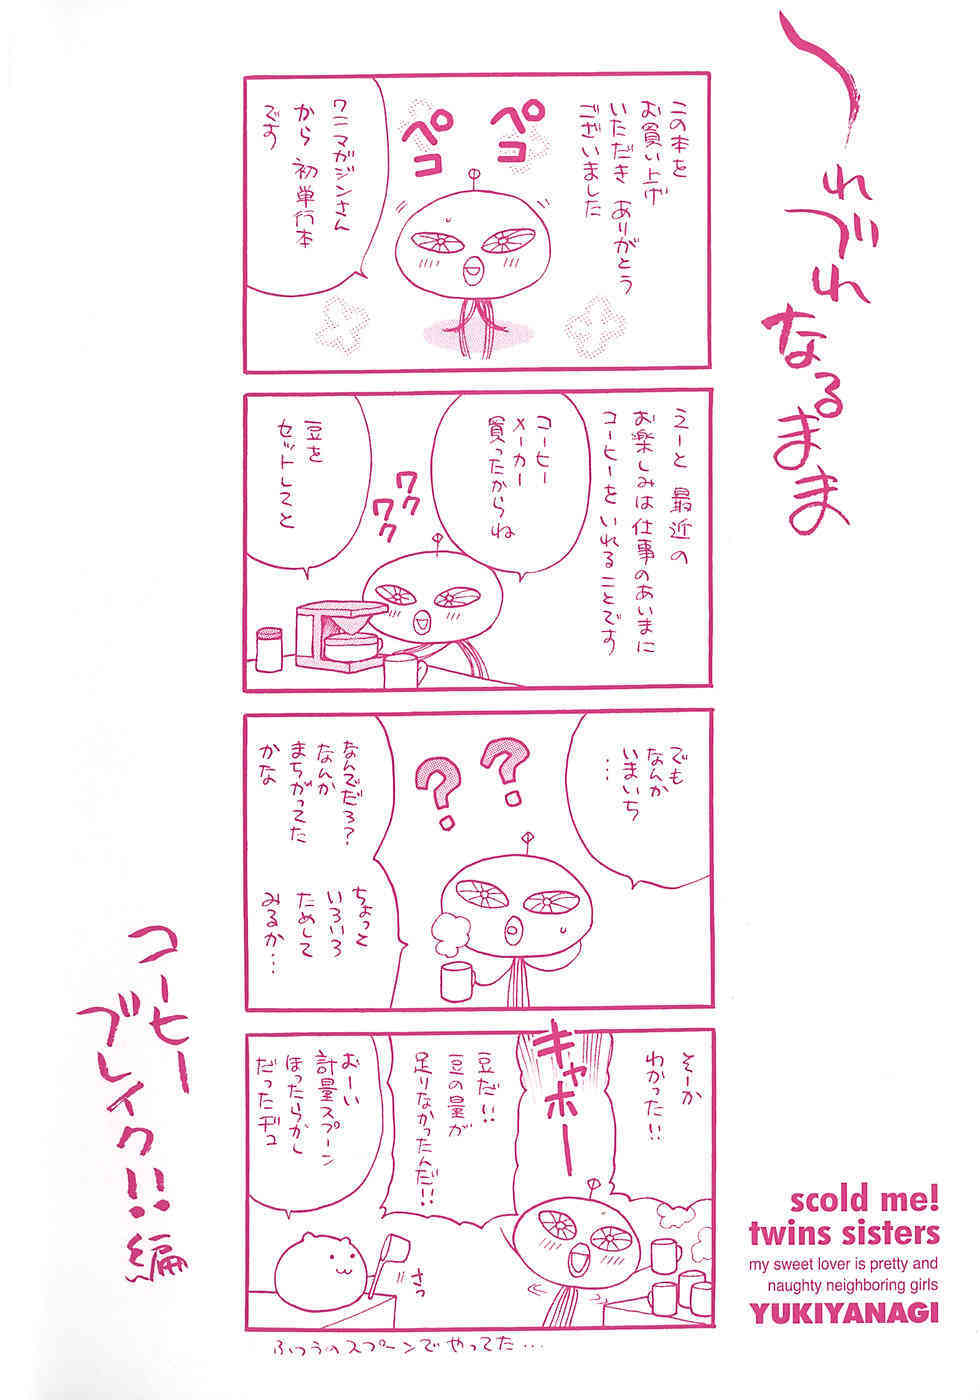 つれづれ
なるまま
この本を
お買い上げ
いただき ありがとう
ございました
ペコ
ペコ
ワニマガジンさん
から 初単行本
です
えーと 最近の
お楽しみは仕事のあいまに
コーヒーをいれることです
コーヒー
メーカー
買ったからね
ワク
ワク
豆を
セットしてと
でも
なんか
いまいち
…
?
?
なんでだろ?
なんか
まちがってた
かな
ちょっと
いろいろ
ためして
みるか…
そーか
わかった!!
キャホー
豆だ!!
豆の量が
足りなかったんだ!!
おーい
計量スプーン
ほったらかし
だったヂュ
さっ
ふつうのスプーンでやってた…
コーヒー
ブレイク!!編
scold me!
twins sisters
my sweet lover is pretty and
naughty neighboring girls
YUKIYANAGI